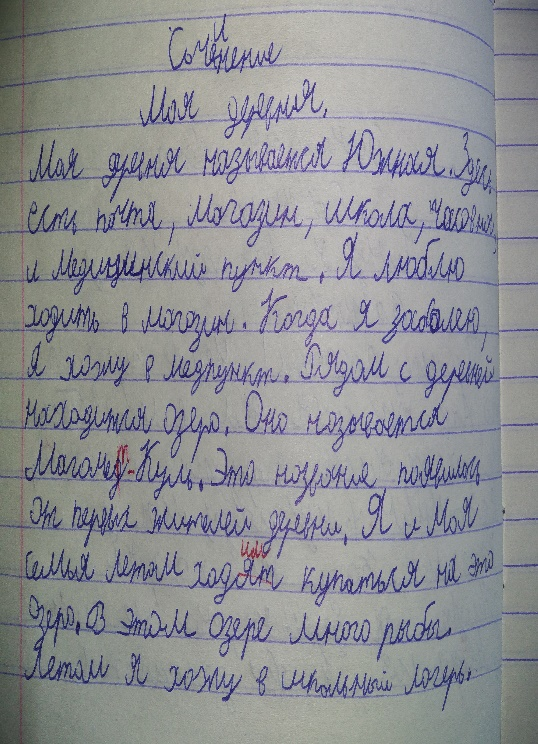 Сочинение
Моя деревня.
Моя древня называется Южная. Здесь
есть почта, магазин, школа, часовня,
и медицинский пункт. Я люблю
ходить в магазин. Когда я заболею,
я хожу в медпункт. Рядом с деревней
находится озеро. Оно называется
Магомед-Куль. Это название появилось
от первых жителей деревни. Я и моя
семья летом ходим купаться на это
озеро. В этом озере много рыбы.
Летом я хожу в школьный лагерь.